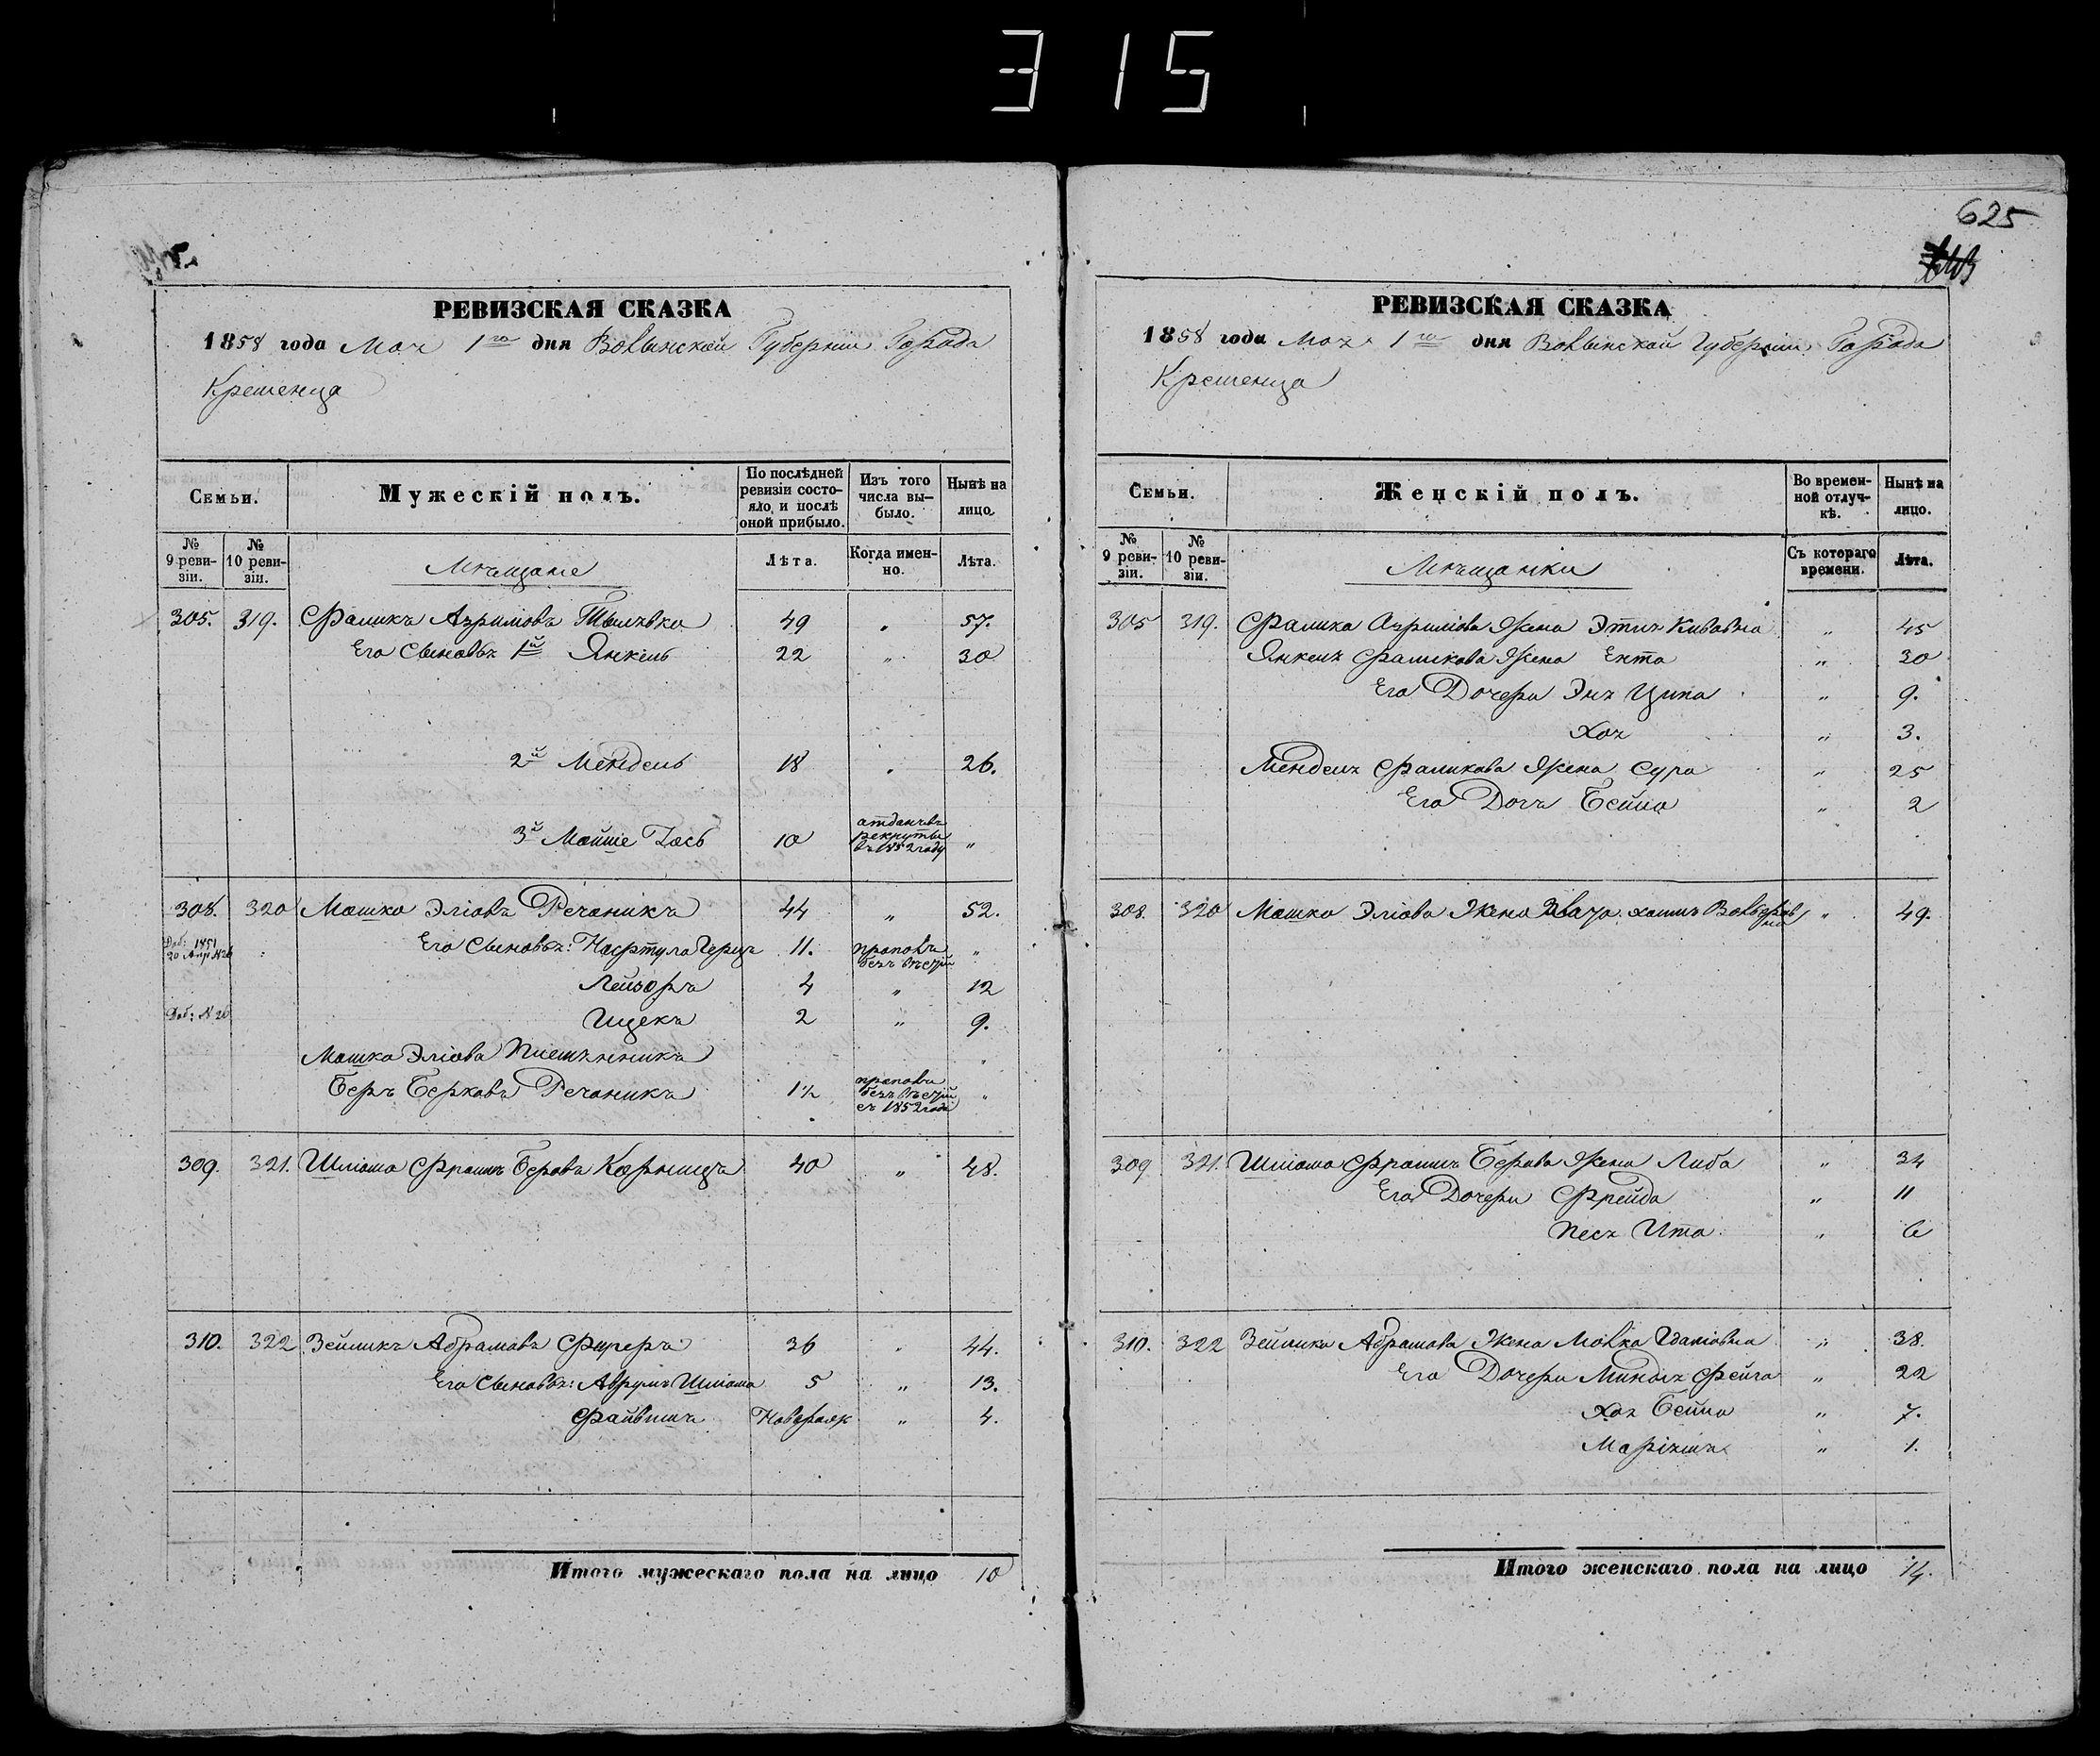 315
625
РЕВИЗСКАЯ СКАЗКА
1858 года Мая 1го дня Волынской Губернии Города
Кременца
Семьи.
Мужескій полъ.
По послѣдней ревизіи состояло, и послѣ оной прибыло.
Изъ того числа выбыло.
Нынѣ на лицо.
№ 9 ревизіи.
№ 10 ревизіи.
Мѣщане
Лѣта.
Когда именно.
Лѣта.
305. 319. Фаликъ Азримовъ 49 " 57.
Его Сыновья 1й Янкель 22 " 30
2й Мендель 18 " 26.
3й Мойше Іось 10 отданъ въ рекруты въ 1852 году "
308. 320 Мошко Эліовъ Речаникъ 44 " 52.
Доб: 1851 20 Апр №26
Его Сыновья: Герцъ 11. пропавъ безъ вѣсти "
Лейзоръ 4 " 12
Доб: № 26
Ицекъ 2 " 9.
Мошка Эліова Племянникъ
Беръ Берковъ Речаникъ 1½ пропавъ безъ вѣсти съ 1852 года "
309. 321. Шліома Фроимъ Беровъ Корницъ 40 " 48.
310. 322 Зейликъ Абрамовъ Фуреръ 36 " 44.
Его Сыновья: Аврумъ Шліома 5 " 13.
Файвишъ Новорож " 4.
Итого мужескаго пола на лицо 10
РЕВИЗСКАЯ СКАЗКА
1858 года Мая 1го дня Волынской Губерніи Города
Кременца
Семьи.
Женскій полъ.
Во временной отлучкѣ.
Нынѣ на лицо.
№ 9 ревизіи.
№ 10 ревизіи.
Мѣщанки
Съ котораго времени.
Лѣта.
305 319. Фалика Азримова Жена Этля Кивовна " 45
Янкеля Фаликова Жена Ента " 30
Его Дочери Эня Ципа " 9.
Хая " 3.
Менделя Фаликова Жена Сура " 25
Его Дочь Бейла " 2
308. 320 Мошка Эліова Жена Двойра " 49.
309 321. Шліома Фроимъ Берова Жена Либа " 34
Его Дочери Фрейда " 11
Песя Ита " 6
310. 322 Зейлика Абрамова Жена Малка " 38.
Его Дочери Миндля Фейга " 22
Хая Бейла " 7.
Маріямъ " 1.
Итого женскаго пола на лицо 14.